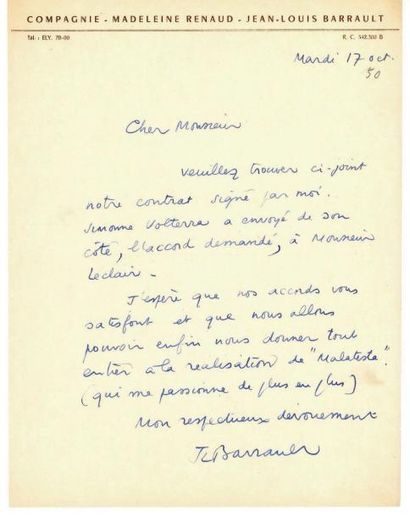 COMPAGNIE - MADELEINE RENAUD - JEAN-LOUIS BARRAULT
Tél. : ELY. 70-00 R. C. 342.300 B
Mardi 17 oct.
50
Cher Monsieur
Veuillez trouver ci-joint
notre contrat signé par moi.
Simonne Volterra a envoyé de son
côté, l'accord demandé, à Monsieur
Leclair -
J'espère que nos accords vous
satisfont et que nous allons
pouvoir enfin nous donner tout
entier à la réalisation de "Malatesta".
(qui me passionne de plus en plus)
Mon respectueux dévouement
JLBarrault